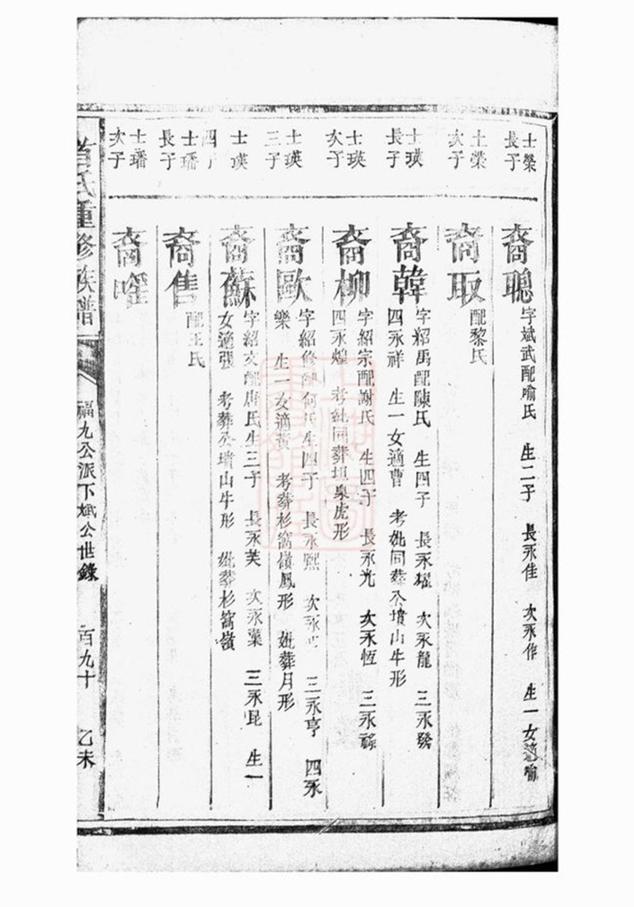 士榮長子
裔聰
字斌武配喻氏 生二子 長永佳 次永作 生一女適喻
士榮次子
裔取
配黎氏
士瑛長子
裔韓
字紹禹配陳氏 生四子 長永耀 次永龍 三永發
四永祥 生一女適曹 考妣同葬公墳山牛形
士瑛次子
裔柳
字紹宗配謝氏 生四子 長永光 次永恆 三永祿
四永煌 考妣同葬坦泉虎形
士瑛三子
裔歐
字紹修配何氏生四子 長永熙 次永 三永亨 四永
樂 生一女適黃 考葬杉窩嶺鳳形 妣葬月形
士瑛四子
裔蘇
字紹文配唐氏生三子 長永芙 次永葉 三永昆 生一
女適張 考葬公墳山牛形 妣葬杉窩嶺
士璠長子
裔售
配王氏
士璠次子
裔
氏重修族譜
福九公派下斌公世錄
百九十
乙未